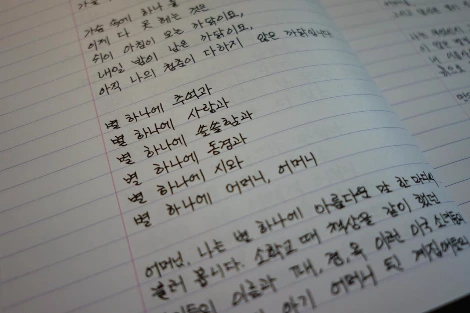 가슴 속에 하나 둘
이제 다 못 헤는 것은
쉬이 아침이 오는 까닭이요,
내일 밤이 남은 까닭이요,
아직 나의 청춘이 다하지 않은 까닭입니다
별 하나에 추억과
별 하나에 사랑과
별 하나에 쓸쓸함과
별 하나에 동경과
별 하나에 시와
별 하나에 어머니, 어머니
어머님, 나는 별 하나에 아름다운 말 한 마디씩
불러 봅니다. 소학교 때 책상을 같이 했던
이름과 패, 경, 옥 이런 이국 소녀들의
아기 어머니 된 계집애들의